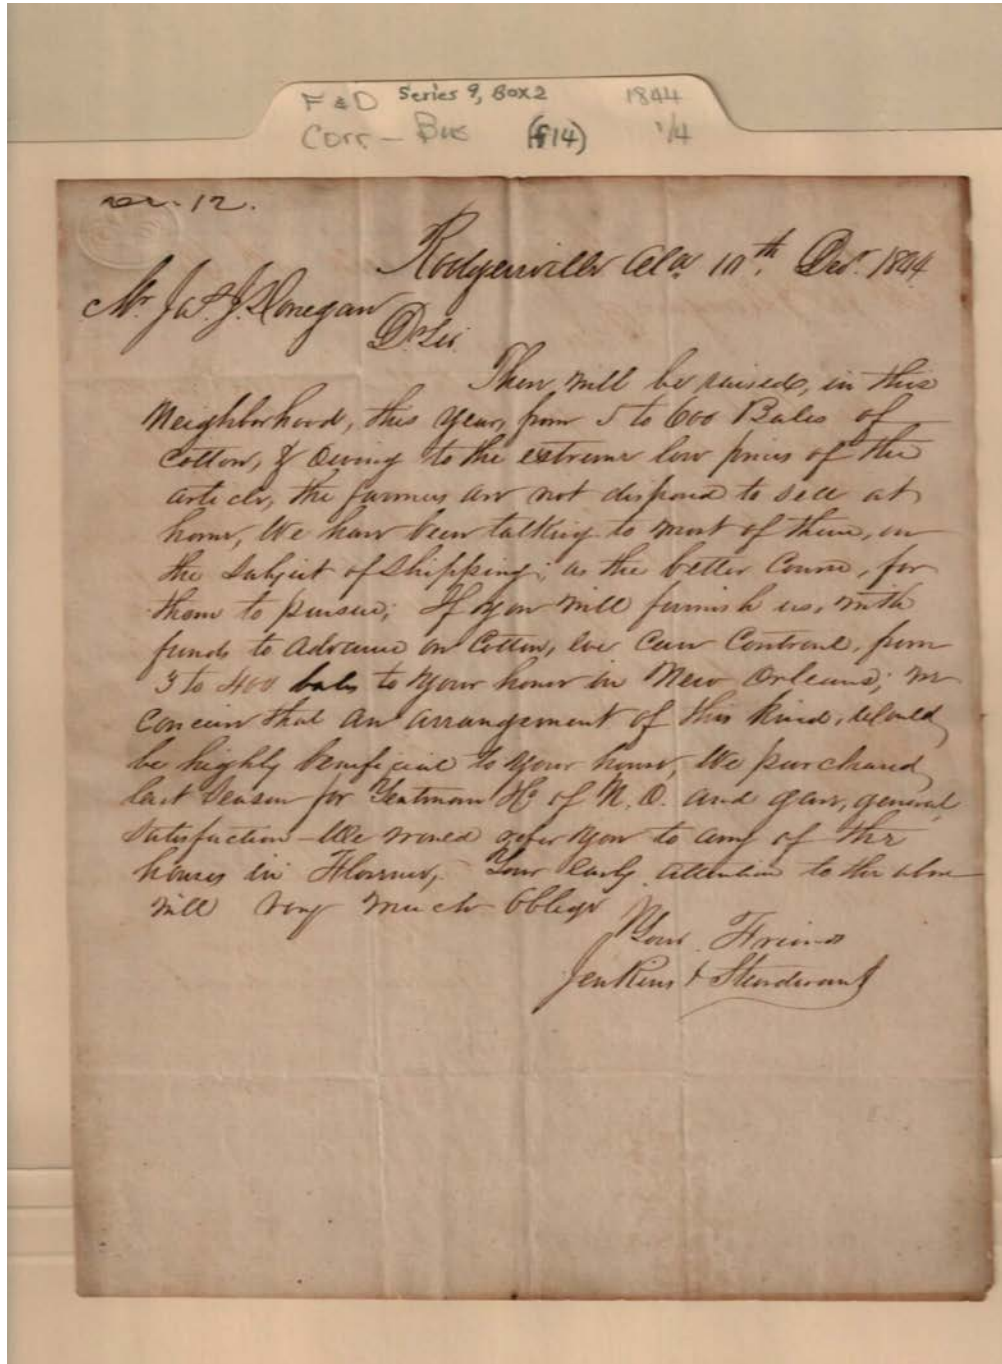 F & D Series 9, Box 2 1844
Corr - Bus (f14) 1/4
12.
Rodgersville Ala 10th. Decr. 1844
Mr Jas. J. Donegan
Dr Sir
There will be raised, in this
Neighborhood, this year, from 5 to 600 Bales of
Cotton, & Owing to the extreme low prices of the
article, the farmers are not disposed to sell at
home, We have been talking to most of them, on
the Subject of Shipping; as the better Course, for
them to pursue; If you will furnish us, with
funds to advance on Cotton, we can Controul, from
3 to 400 bales to your house in New Orleans; we
Concieve that an arrangement of this kind, Would
be highly beneficial to your house, We purchased
last Season for Yeatman & Co of N. O. and gave, general,
Satisfaction - We would refer you to any of the
houses in Florence, Your Early attention to the above
will very much Oblige
Your Friends
Jenkins & Sturdivant